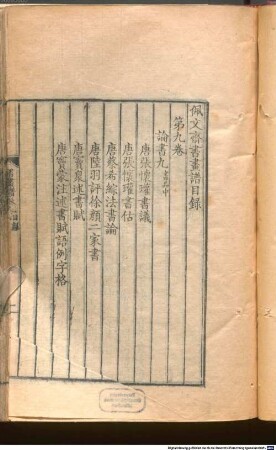 佩文齋書畫譜目錄
第九卷
論書九 書品中
唐張懷瓘書議
唐張懷瓘書估
唐蔡希綜法書論
唐陸羽評徐顏二家書
唐竇臮述書賦
唐竇蒙注述書賦語例字格